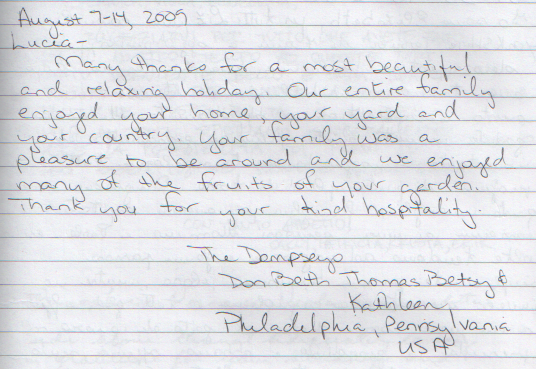 August 7-14, 2009
Lucia-
Many thanks for a most beautiful
and relaxing holiday. Our entire family
enjoyed your home, your yard and
your country. Your family was a
pleasure to be around and we enjoyed
many of the fruits of your garden.
Thank you for your kind hospitality.
The Dempseys
Don Beth Thomas Betsy &
Kathleen
Philadelphia, Pennsylvania
USA